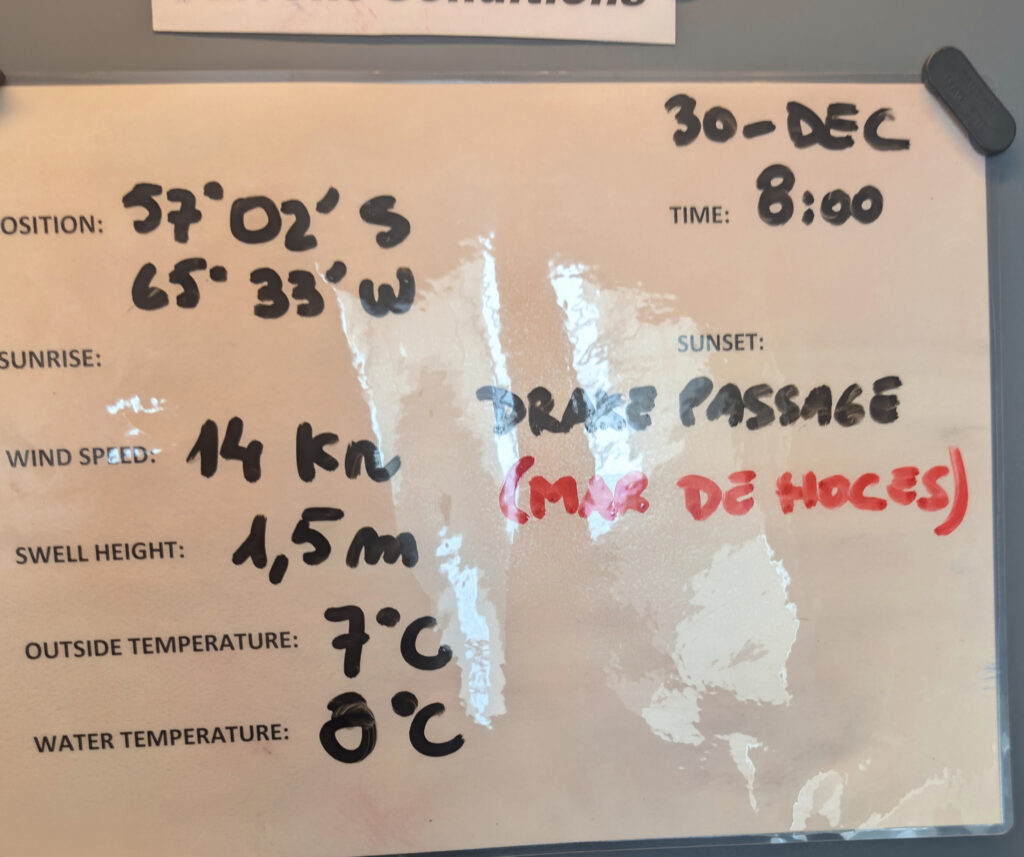 Conditions
30-DEC
OSITION: 57°02' S TIME: 8:00
65° 33' W
SUNRISE: SUNSET:
DRAKE PASSAGE
WIND SPEED: 14 Kn
(MAR DE HOCES)
SWELL HEIGHT: 1,5 m
OUTSIDE TEMPERATURE: 7°C
WATER TEMPERATURE: